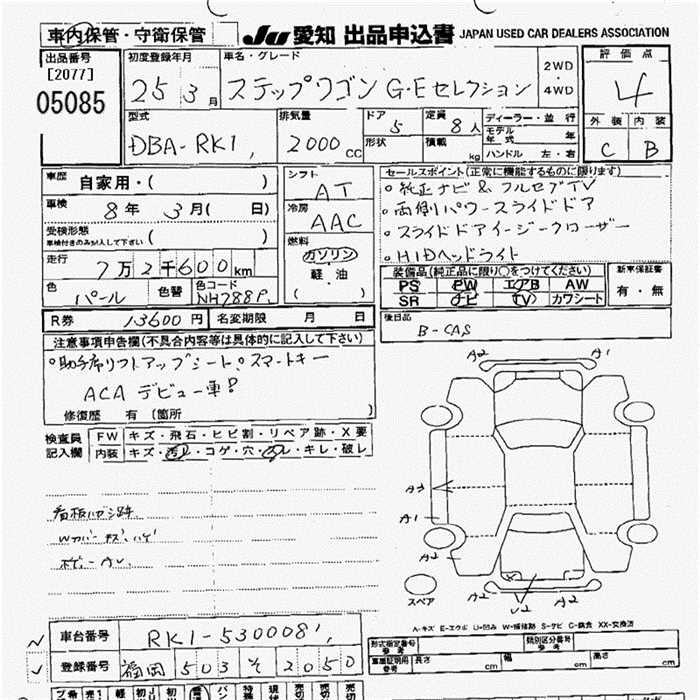 車内保管・守衛保管
JU 愛知 出品申込書 JAPAN USED CAR DEALERS ASSOCIATION
出品番号
[2077]
05085
初度登録年月
25 3月
車名・グレード
ステップワゴン G・Eセレクション
2WD
・
4WD
評価点
4
外装 内装
C B
型式
DBA-RK1,
排気量
2000 CC
ドア
5
定員
8人
形状
積載
kg
ディーラー・並行
モデル年式 年
ハンドル 左・右
車歴
自家用・( )
車検
8年 3月( 日)
受検形態
車検付きのみ記入して下さい ( )
走行
7万2千600km
色
パール
色替
色コード
NH788P,
シフト
AT
冷房
AAC
燃料
ガソリン
軽・油
( )
セールスポイント(正常に機能するものに限ります)
○純正ナビ&フルセグTV
○両側パワースライドドア
○スライドドアイージークローザー
○HIDヘッドライト
装備品(純正品に限り○をつけてください)
PS PW エアB AW
SR ナビ TV カワシート
新車保証書
有・無
R券 13600円
名変期限 月 日
後日品
B-CAS
注意事項申告欄(不具合内容等は具体的に記入して下さい)
○助手席リフトアップシート○スマートキー
ACAデビュー車!
修復歴 有 (箇所 )
検査員
記入欄
FW キズ・飛石・ヒビ割・リペア跡・X要
内装 キズ・汚レ・コゲ・穴・スレ・キレ・破レ
看板ハガシ跡.
A2 A1
A3
A1
A2
A2 U2 A2
スペア
A-キズ E-エクボ U-凹み W-補修跡 S-サビ C-腐食 XX-交換済
車台番号
RK1-5300081,
登録番号
福岡 503 そ 2050
形式指定番号
参考
類別区分番号
参考
車庫証明用
参考
長さ cm
幅 cm
高さ cm